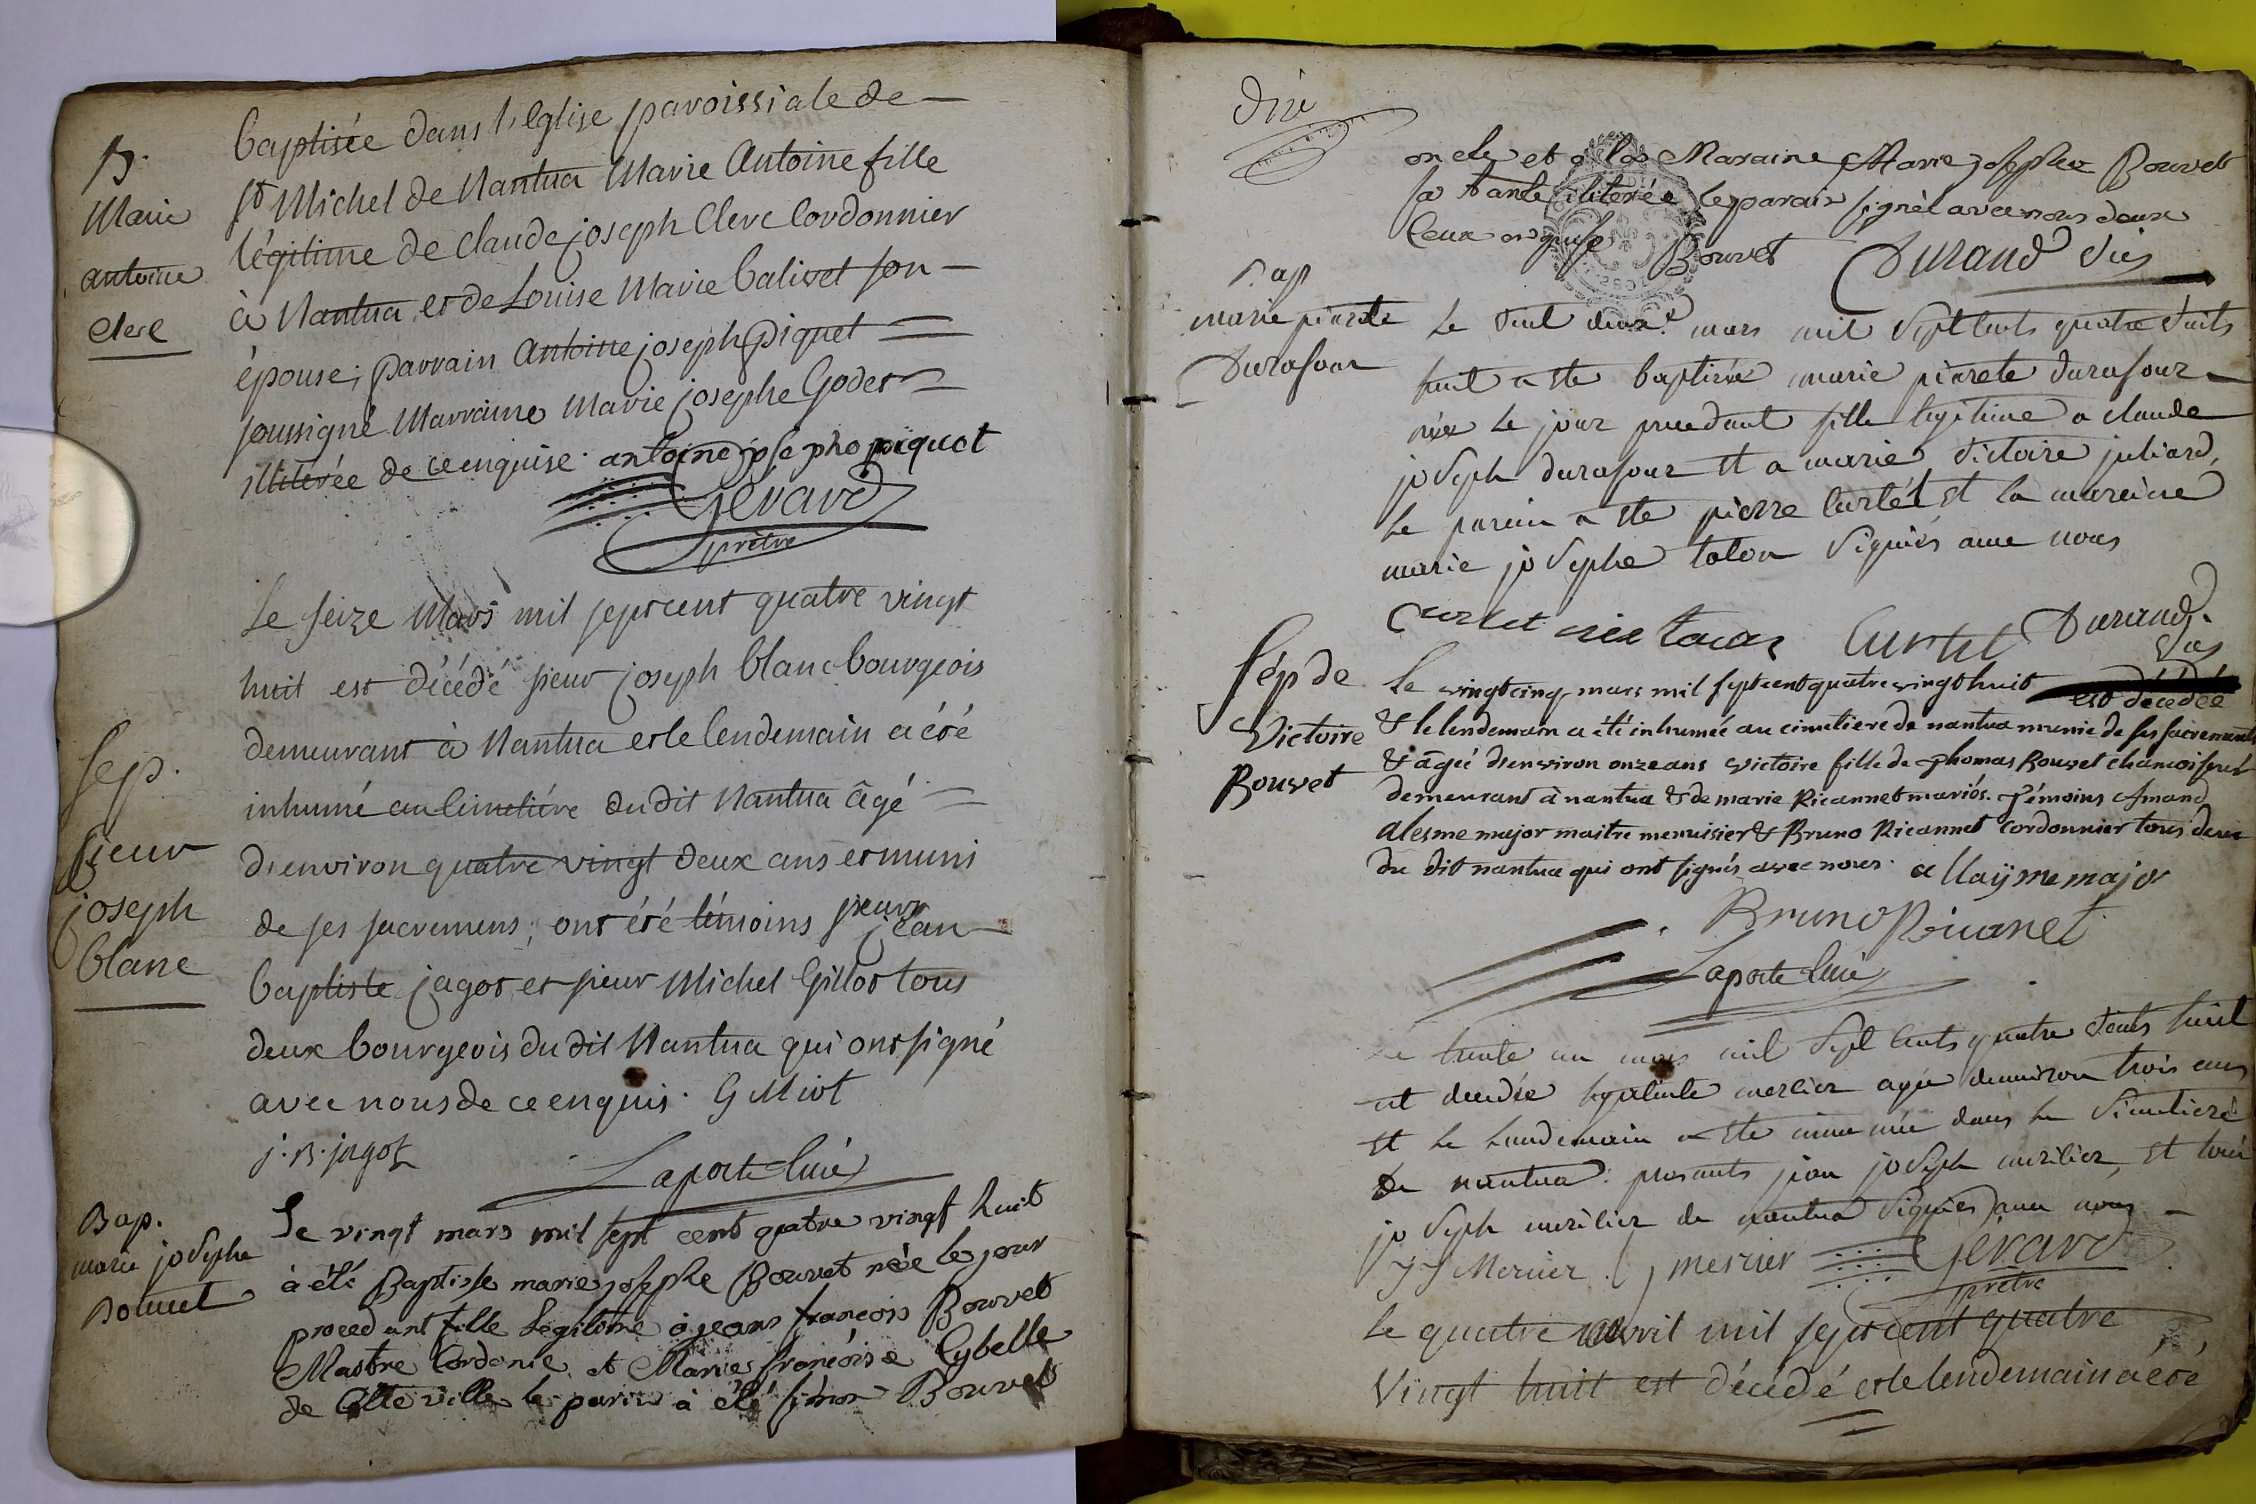 B.
Marie
antoine
Clerc
baptisée dans l'Eglise paroissiale de
St Michel de Nantua Marie Antoine fille
légitime de claude joseph Clerc Cordonnier
à Nantua et de Louise Marie Calivet son
épouse; parrain Antoine joseph piquet
soussigné Marraine Marie josephe Godet
illitérée de ce enquise. antoine josephe piquet
Gerard
prêtre
Le seize Mars mil sept cent quatre vingt
huit est décédé sieur joseph blanc bourgeois
demeurant à Nantua et le lendemain a été
inhumé au Cimetiére du dit Nantua âgé
d'environ quatre vingt deux ans et muni
de ses sacremens; ont été témoins sieurs jean
baptiste jagot et sieur Michel Gillot tous
deux bourgeois du dit Nantua qui ont signé
avec nous de ce enquis. G Miot
j. B. jagot
Laporte Curé
Sep.
Sieur
joseph
blanc
Bap.
marie josephe
Bouvet
Le vingt mars mil sept cent quatre vingt huit
à été Baptisse marie josephe Bouvet née le jour
procedant fille Legitime à jean françois Bouvet
Maitre Cordonie et Marie françoise Cybelle
de Cette ville le parin à été simon Bouvet
oncle et à la Maraine Marie josephe Bouvet
sa tante iliterée le parain signé avec nous deux
Ceux enquise Bouvet Durand vic
Bap
marie pierete
Durafour
Le vint deux mars mil sept cents quatre vints
huit a ete baptisée marie pierete durafour
née le jour precedant fille legitime a claude
joseph durafour et a marie victoire juliard,
le parain a ete pierre Curtét et la maraine
marie josephe talon signés avec nous
Curtet Durand.
Vic
Sép de
Victoire
Bouvet
Le vingt cinq mars mil sept cent quatre vingt huit est décédée
& le lendemain a été inhumée au cimetiere de nantua munie de ses sacrements
& agée d'environ onze ans victoire fille de Thomas Bouvet
demeurant à nantua & de marie Ricannet mariés. Témoins Amand
alesme major maitre menuisier & Bruno Ricannet Cordonnier tous deux
du dit nantua qui ont signés avec nous. allayme major
Bruno Ricanet
Laporte Curé
Le trente un mars mil sept cents quatre vints huit
est decedée mercier agée d'environ trois ans
et le lendemain a ete inhumée dans le Simetiere
de nantua: presents jean joseph mercier, et
joseph mercier de nantua signés avec nous
J J Mercier. j mercier Gerard
prêtre
Le quatre avril mil sept cent quatre
vingt huit est décédé et le lendemain a été